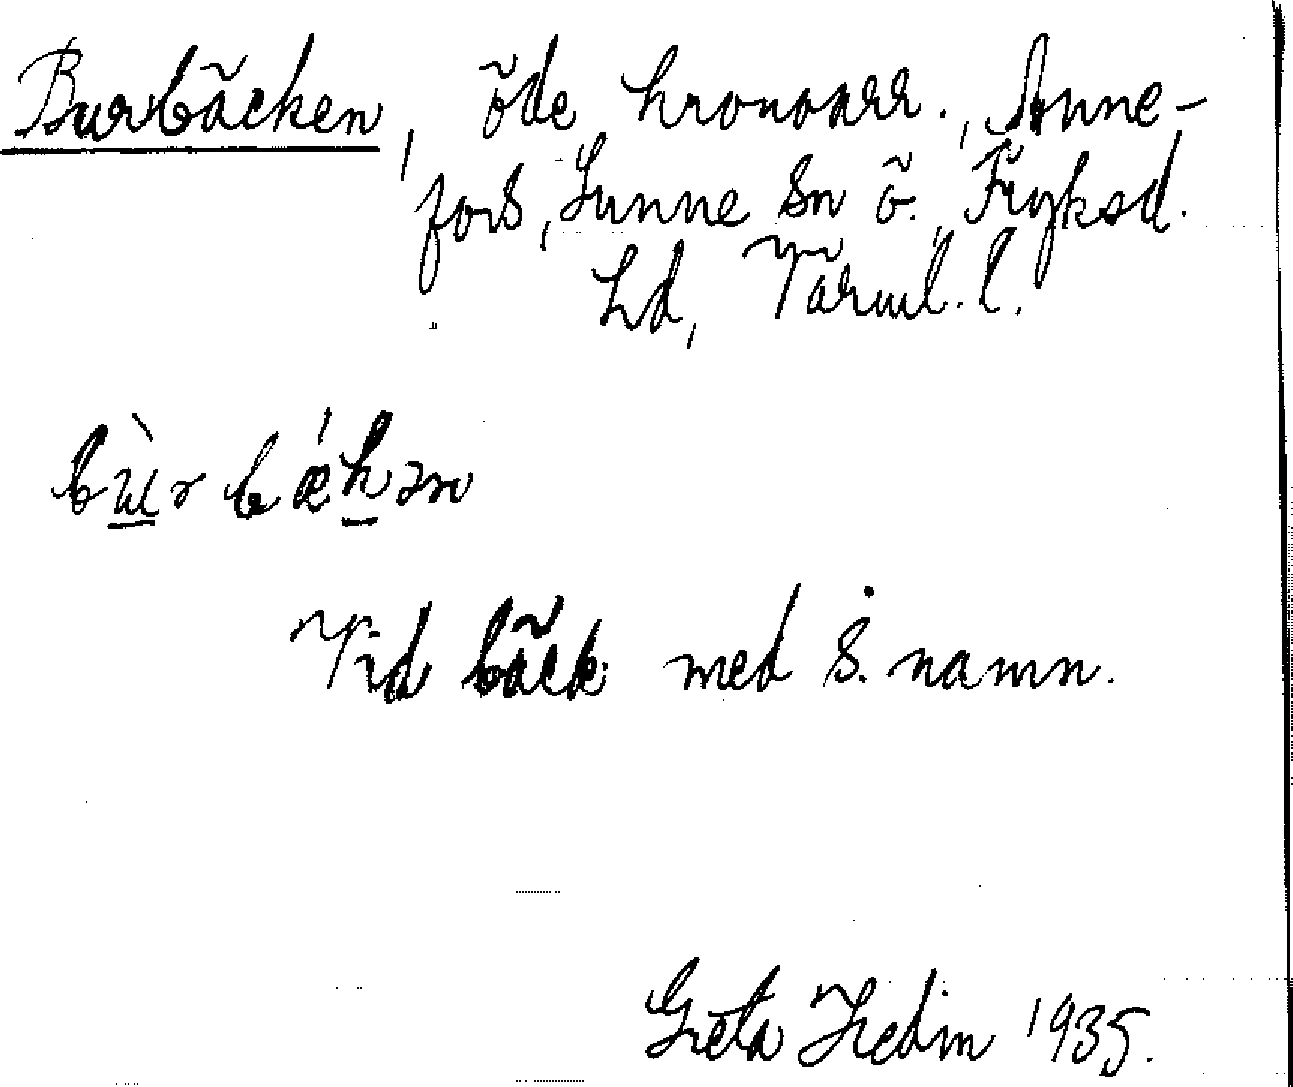 Burbäcken, öde kronoarr., Anne-
fors, Sunne sn ö., Fryksd.
hd, Värml. l.
bùrbǽkən
Vid bäck med s. namn.
Greta Hedin 1935.